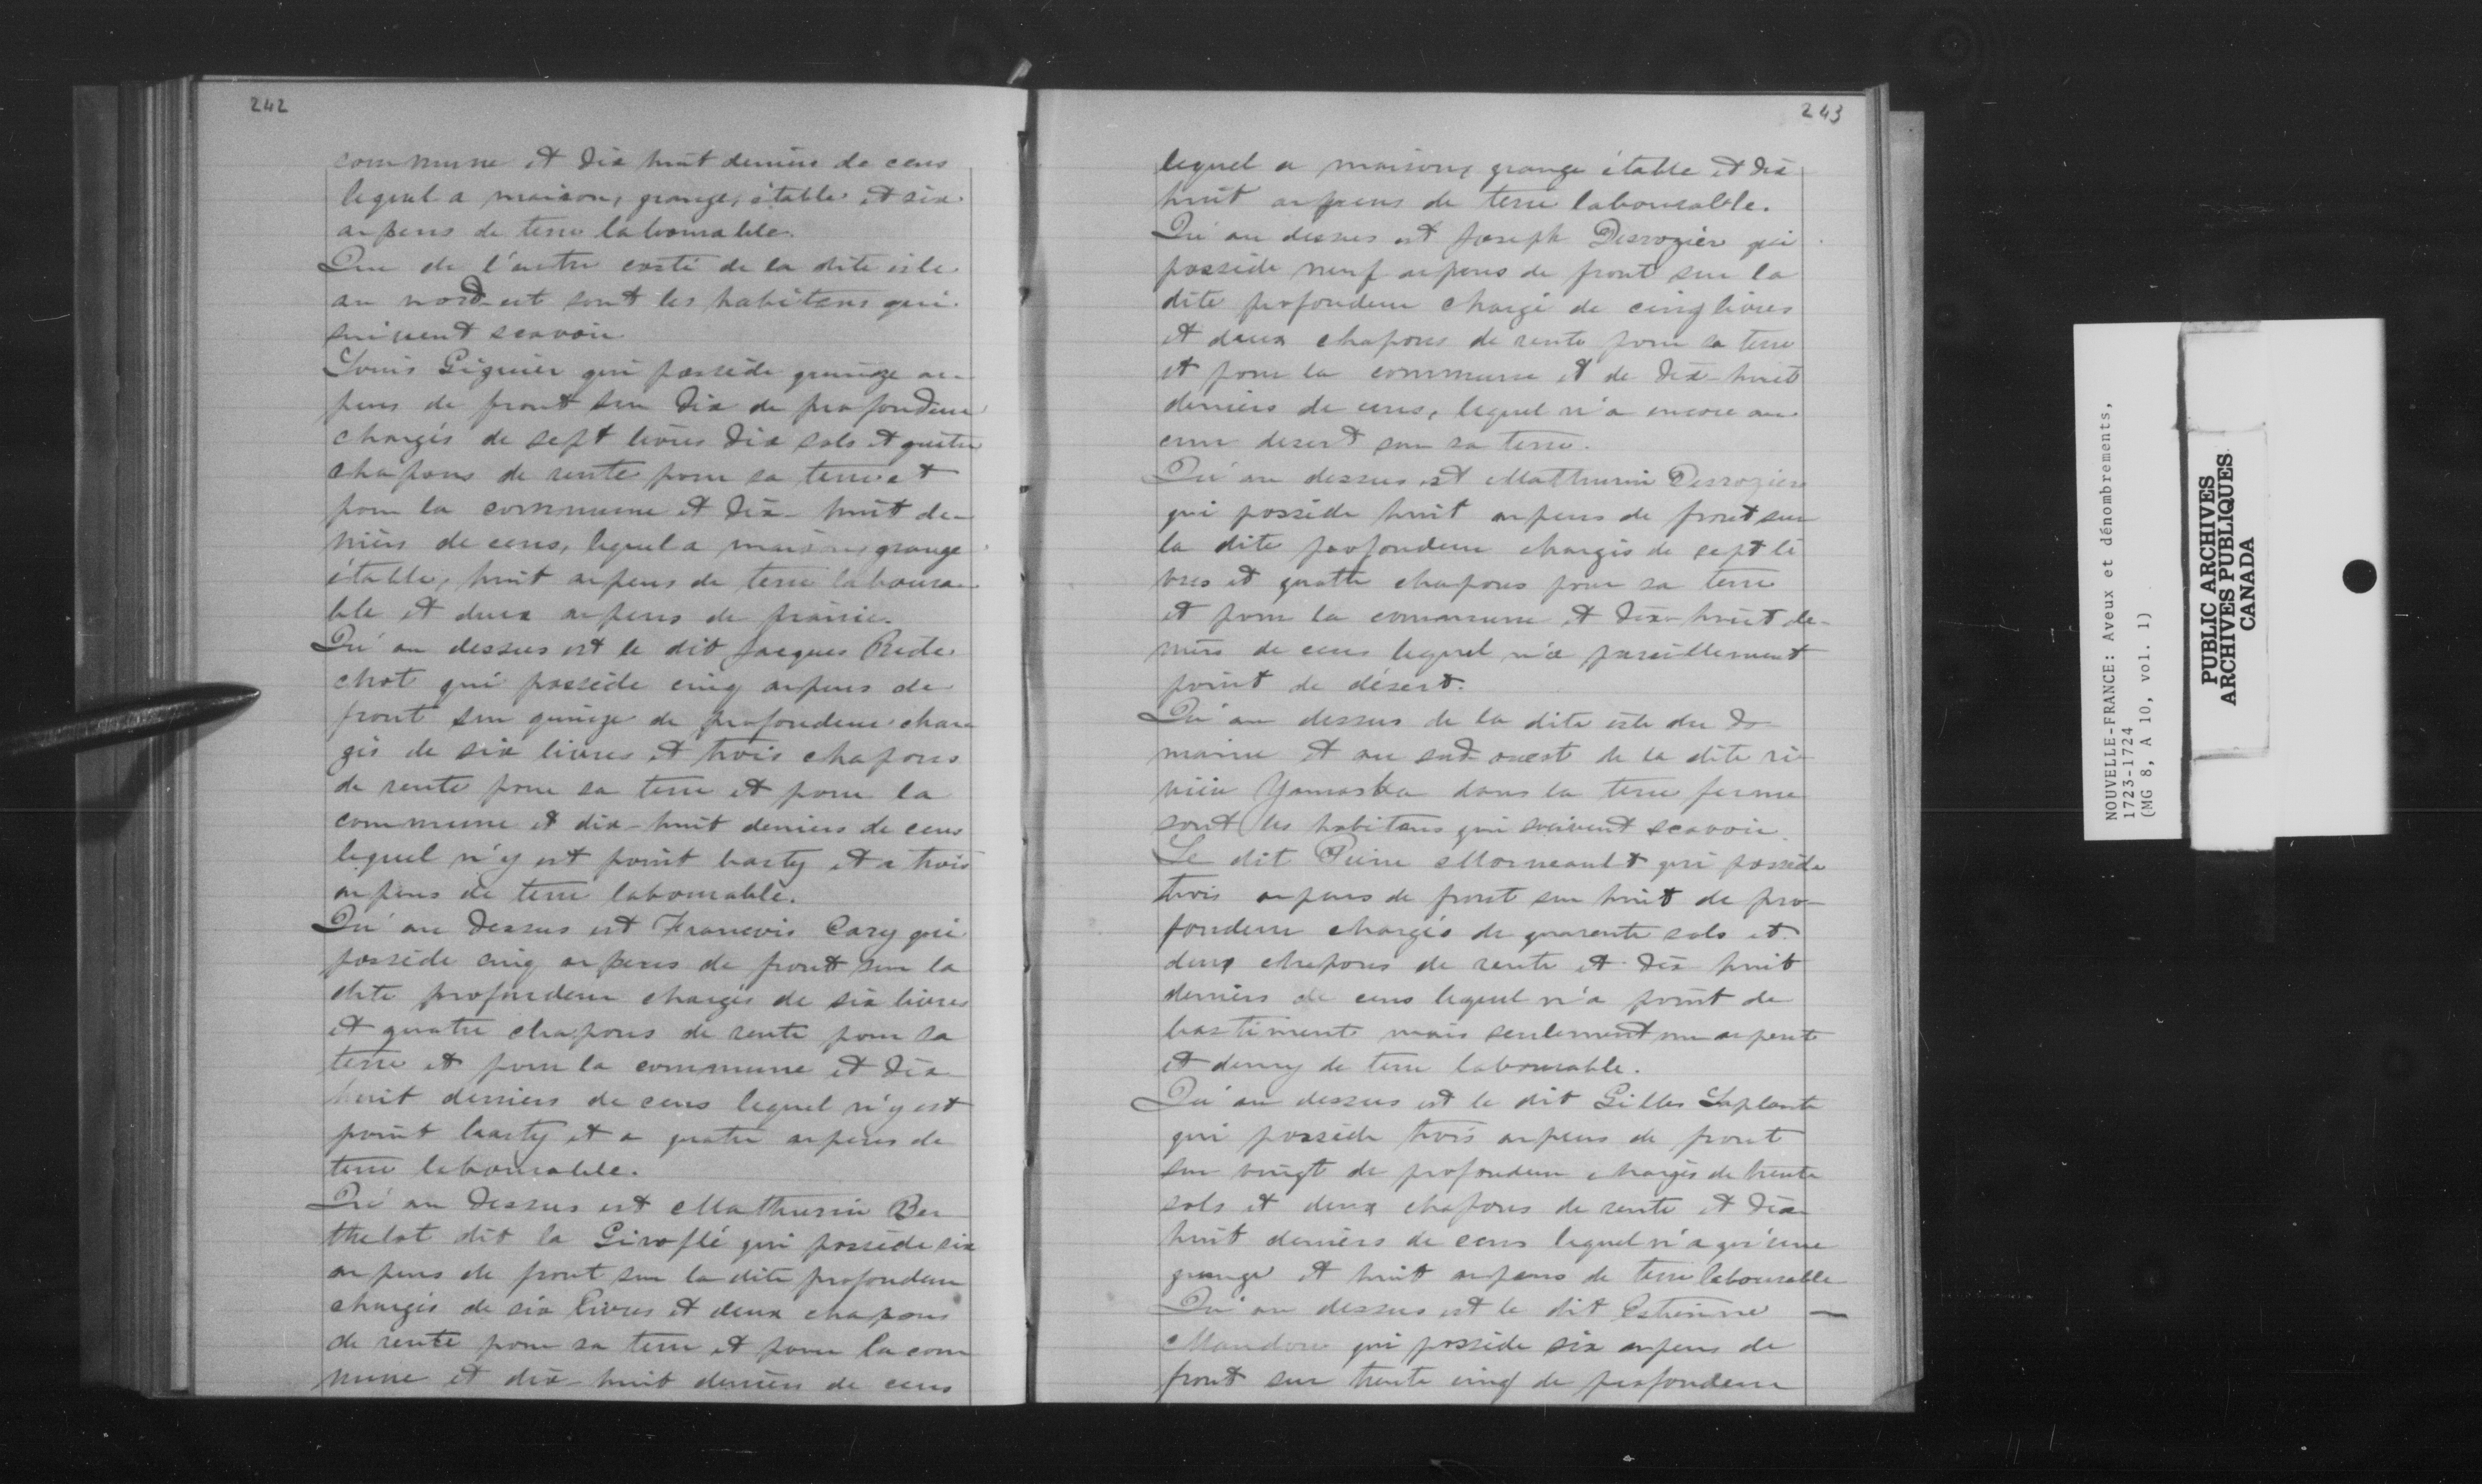 242
commune et dix huit deniers de cens
lequel a maison, grange, étable et six
arpens de terre labourable.
Que de l'autre costé de la dite isle
au nord-est sont les habitans qui
suivent scavoir
Louis Giguier qui possède quinze ar-
pens de front sur dix de profondeur
chargés de sept livres dix sols et quatre
chapons de rente pour sa terre et
pour la commune et dix-huit de-
niers de cens, lequel a maison, grange
étable, huit arpens de terre laboura-
ble et deux arpens de prairie.
Qu'au dessus est le dit Jacques Rede
chot qui possède cinq arpens de
front sur quinze de profondeur char
gés de six livres et trois chapons
de rente pour sa terre et pour la
commune et dix-huit deniers de cens
lequel n'y est point basty et a trois
arpens de terre labourable.
Qu'au dessus est Francois Cary qui
possède cinq arpens de front sur la
dite profondeur chargés de six livres
et quatre chapons de rente pour sa
terre et pour la commune et dix
huit deniers de cens lequel n'y est
point basty et a quatre arpens de
terre labourable.
Qu'au dessus est Mathurin Ber
thelot dit la Giroflé qui possède six
arpens de front sur la dite profondeur
chargés de six livres et deux chapons
de rente pour sa terre et pour la com
mune et dix-huit deniers de cens
243
lequel a maison, grange étable et dix
huit arpens de terre labourable.
Qu'au dessus est Joseph Desrozier qui
possède neuf arpens de front sur la
dite profondeur chargé de cinq livres
et deux chapons de rente pour sa terre
et pour la commune et de dix-huit
deniers de cens, lequel n'a encore au-
cun desert sur sa terre.
Qu'au dessus est Mathurin Desroziers
qui possède huit arpens de front sur
la dite profondeur chargés de sept li
vres et quatre chapons pour sa terre
et pour la commune et dix-huit de-
niers de cens lequel n'a pareillement
point de désert.
Qu'au dessus de la dite isle du do
maine et au sud-ouest de la dite ri-
vière Yamaska dans la terre ferme
sont les habitans qui suivent scavoir
Le dit Pierre Morneault qui possède
trois arpens de front sur huit de pro-
fondeur chargés de quarente sols et
deux chapons de rente et dix huit
deniers de cens lequel n'a point de
bastiments mais seulement un arpent
et demy de terre labourable.
Qu'au dessus est le dit Gilles Laplante
qui possède trois arpens de front
sur vingt de profondeur chargés de trente
sols et deux chapons de rente et dix
huit deniers de cens lequel n'a qu'une
grange et huit arpens de terre labourable
Qu'au dessus est le dit Estienne —
Mandore qui possède six arpens de
front sur trente cinq de profondeur
NOUVELLE-FRANCE: Aveux et dénombrements,
1723-1724
(MG 8, A 10, vol. 1)
PUBLIC ARCHIVES
ARCHIVES PUBLIQUES
CANADA